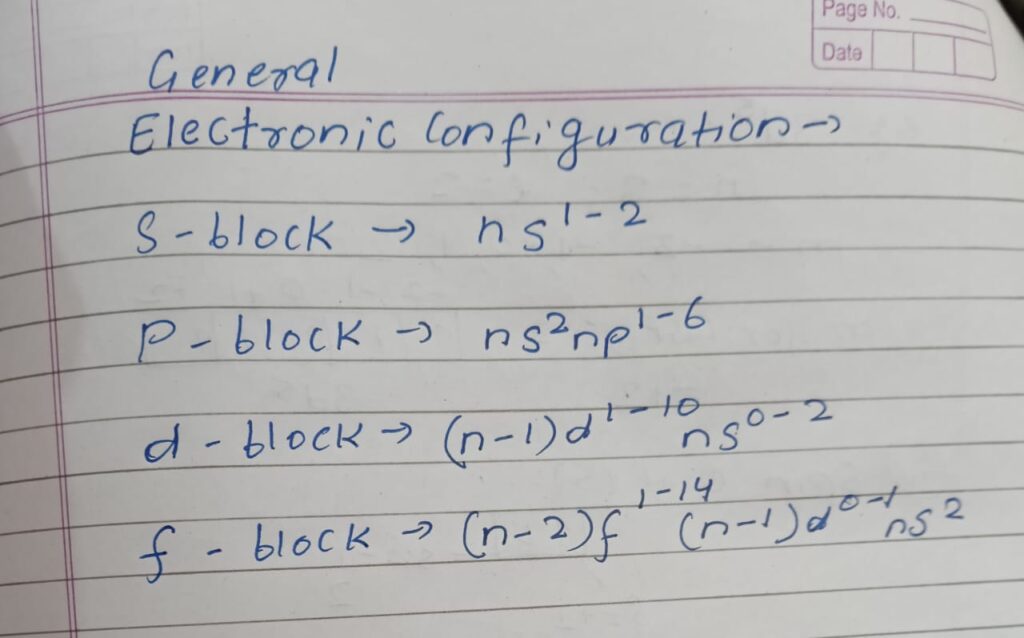 Page No.
Date
General
Electronic Configuration →
S - block → ns¹⁻²
P - block → ns²np¹⁻⁶
d - block → (n-1)d¹⁻¹⁰ ns⁰⁻²
f - block → (n-2)f¹⁻¹⁴ (n-1)d⁰⁻¹ ns²